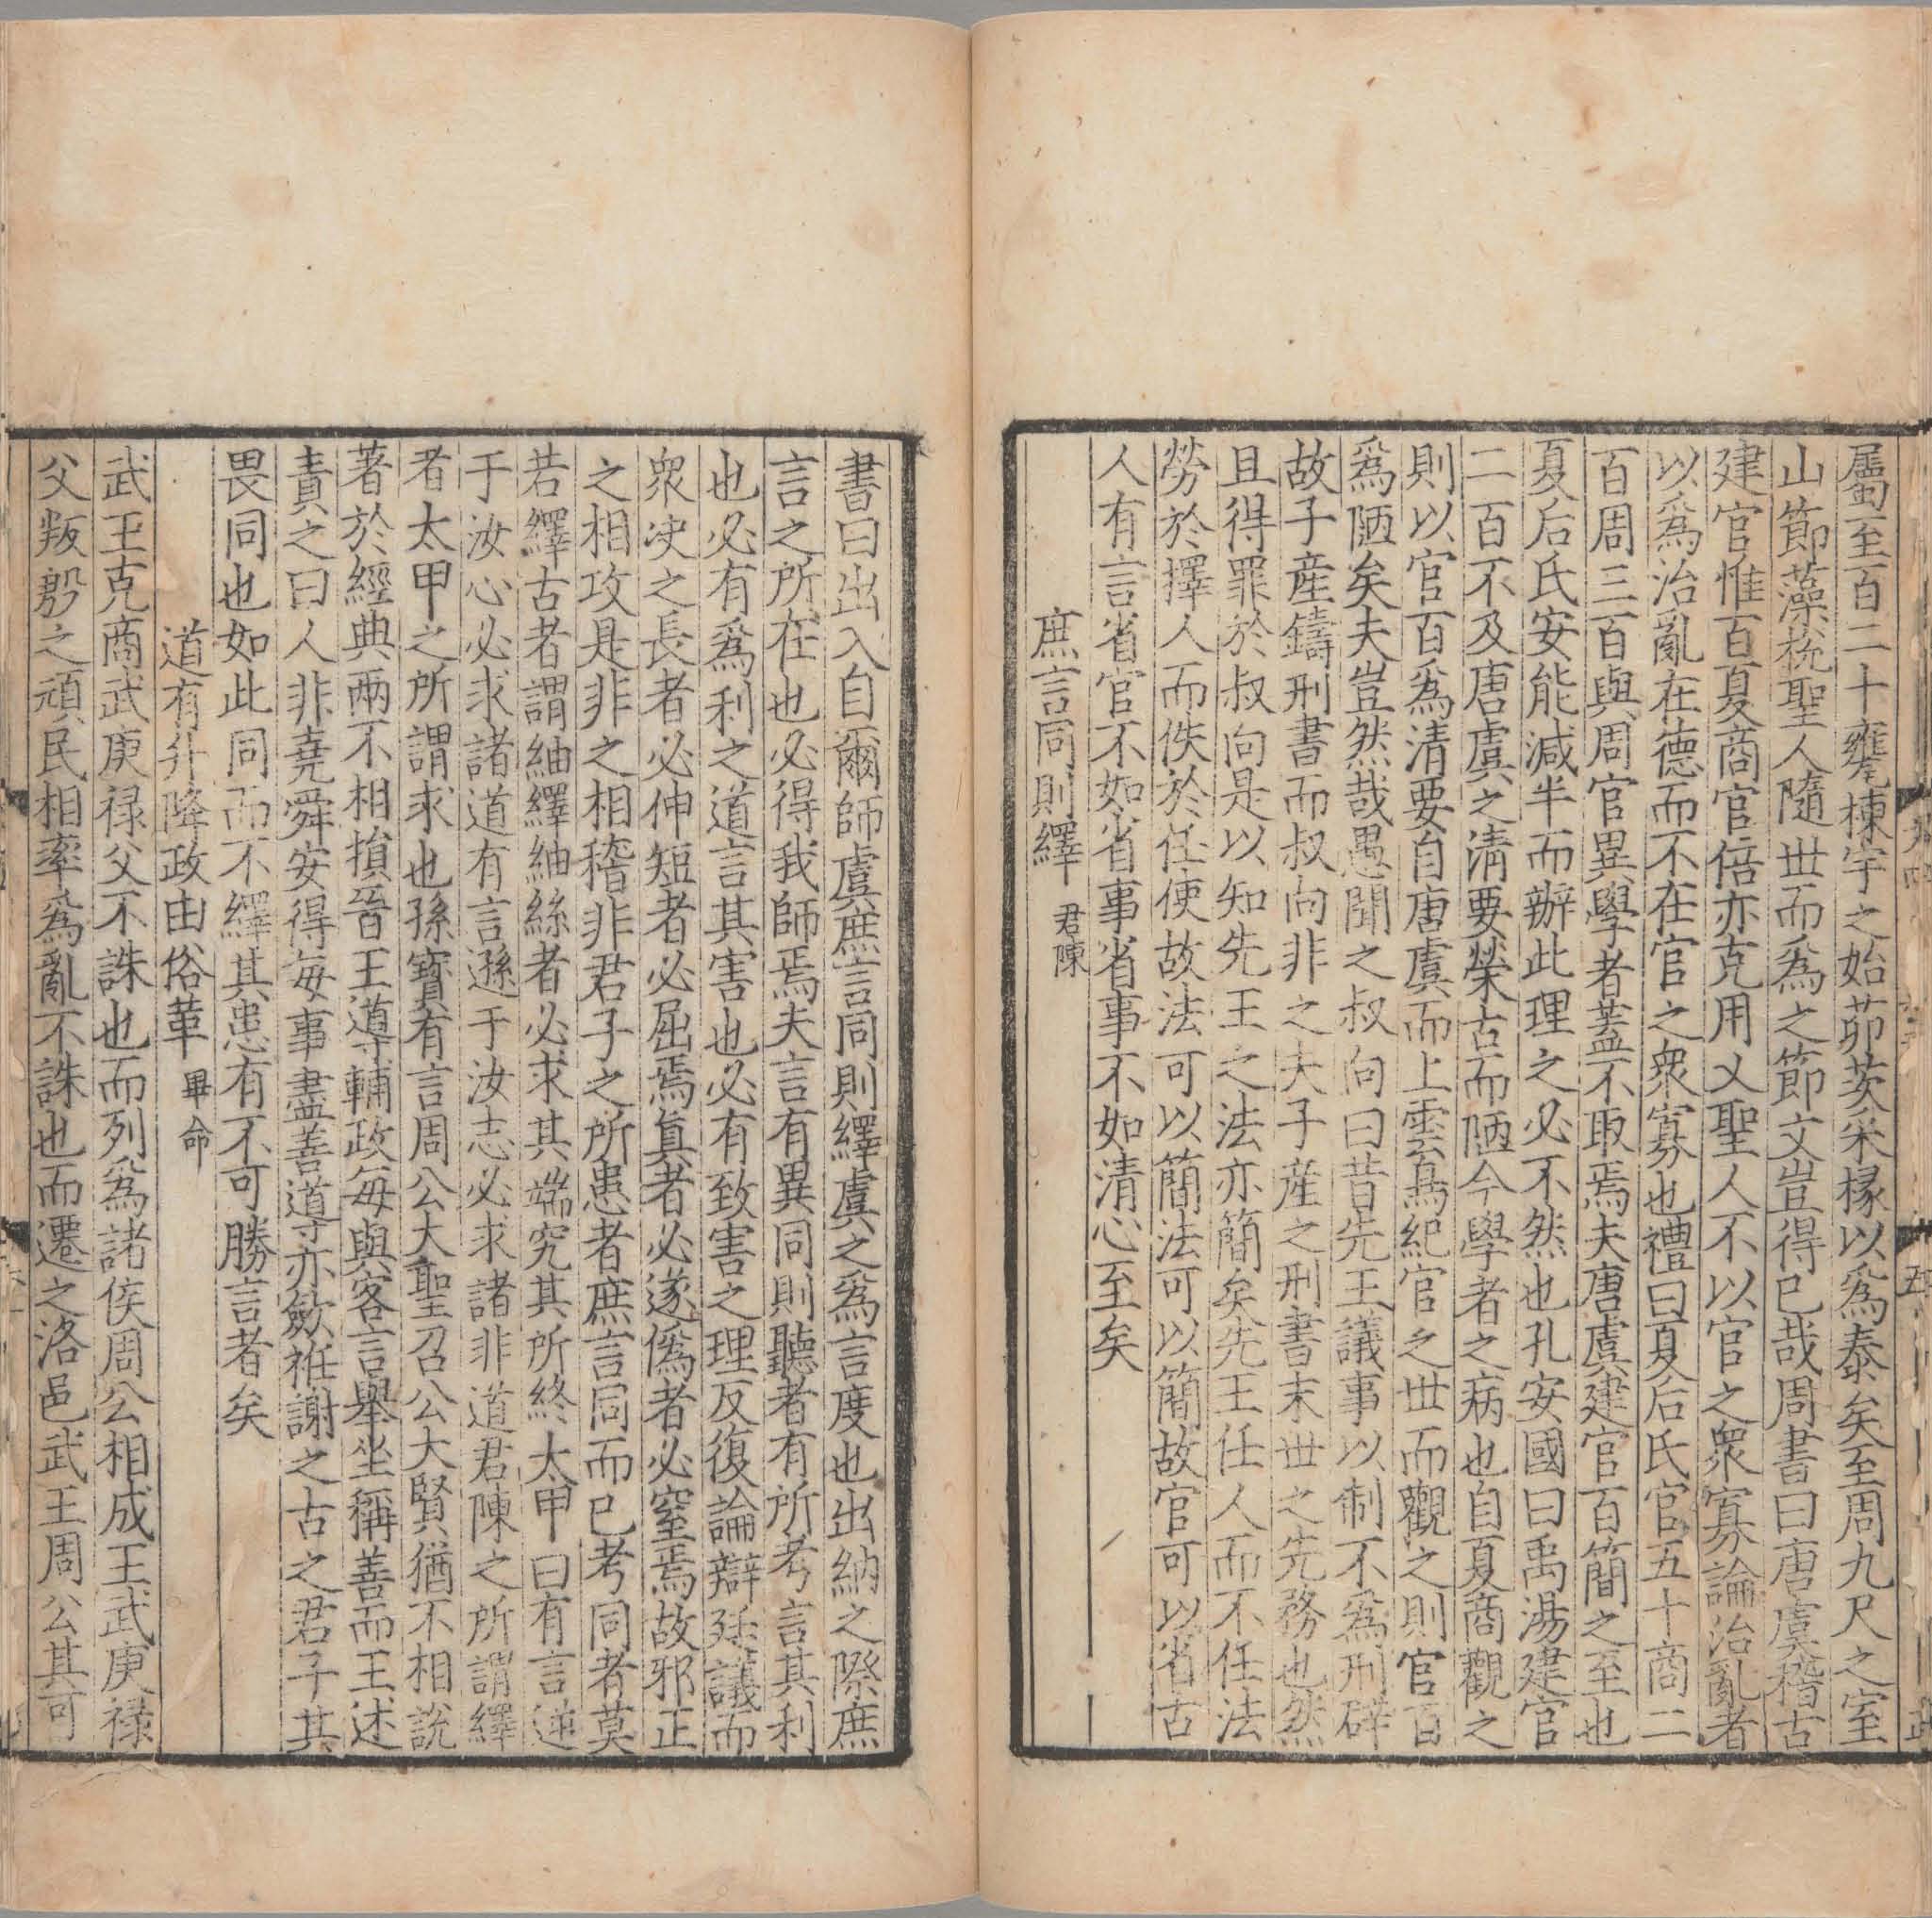 屬至百二十甕棟宇之始茆茨采椽以爲泰矣至周九尺之室
山節藻梲聖人隨世而爲之節文豈得已哉周書曰唐虞稽古
建官惟百夏商官倍亦克用乂聖人不以官之衆寡論治亂者
以爲治亂在德而不在官之衆寡也禮曰夏后氏官五十商二
百周三百與周官異學者蓋不取焉夫唐虞建官百簡之至也
夏后氏安能减半而辦此理之必不然也孔安國曰禹湯建官
二百不及唐虞之清要榮古而陋今學者之病也自夏商觀之
則以官百爲清要自唐虞而上雲鳥紀官之世而觀之則官百
爲陋矣夫豈然哉愚聞之叔向曰昔先王議事以制不爲刑辟
故子産鑄刑書而叔向非之夫子産之刑書末世之先務也然
且得罪於叔向是以知先王之法亦簡矣先王任人而不任法
勞於擇人而佚於任使故法可以簡法可以簡故官可以省古
人有言省官不如省事省事不如清心至矣
庶言同則繹 君陳
書曰出入自爾師虞庶言同則繹虞之爲言度也出納之際庶
言之所在也必得我師焉夫言有異同則聽者有所考言其利
也必有爲利之道言其害也必有致害之理反復論辯廷議而
衆决之長者必伸短者必屈焉真者必遂僞者必窒焉故邪正
之相攻是非之相稽非君子之所患者庶言同而已考同者莫
若繹古者謂紬繹紬絲者必求其端究其所終太甲曰有言逆
于汝心必求諸道有言遜于汝志必求諸非道君陳之所謂繹
者太甲之所謂求也孫寳有言周公大聖召公大賢猶不相說
著於經典兩不相損晉王導輔政每與客言舉坐稱善而王述
責之曰人非堯舜安得每事盡善導亦歛袵謝之古之君子其
畏同也如此同而不繹其患有不可勝言者矣
道有升降政由俗革 畢命
武王克商武庚禄父不誅也而列爲諸侯周公相成王武庚禄
父叛殷之頑民相率爲亂不誅也而遷之洛邑武王周公其可